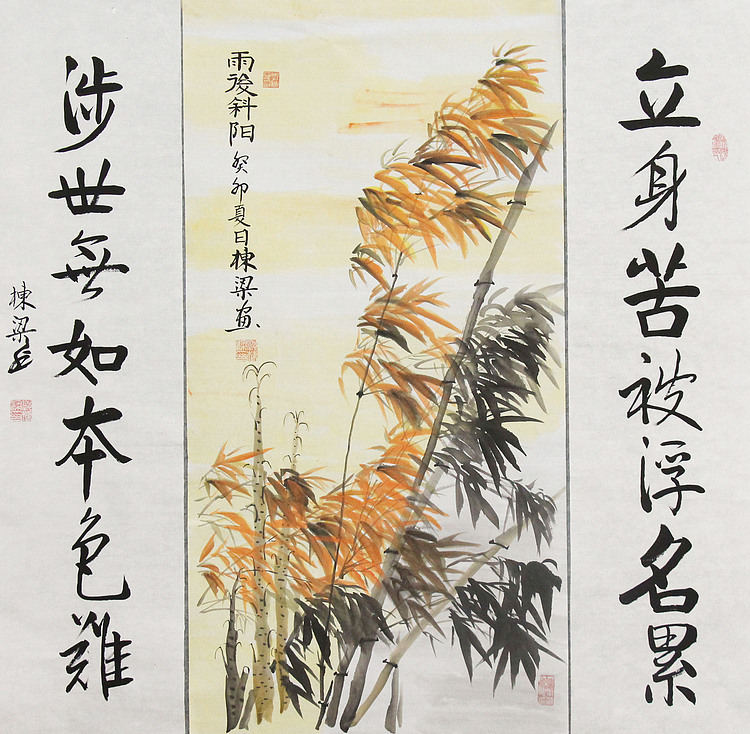 立身苦被浮名累
雨後斜阳
癸卯夏日棟梁画
涉世無如本色難
棟梁书